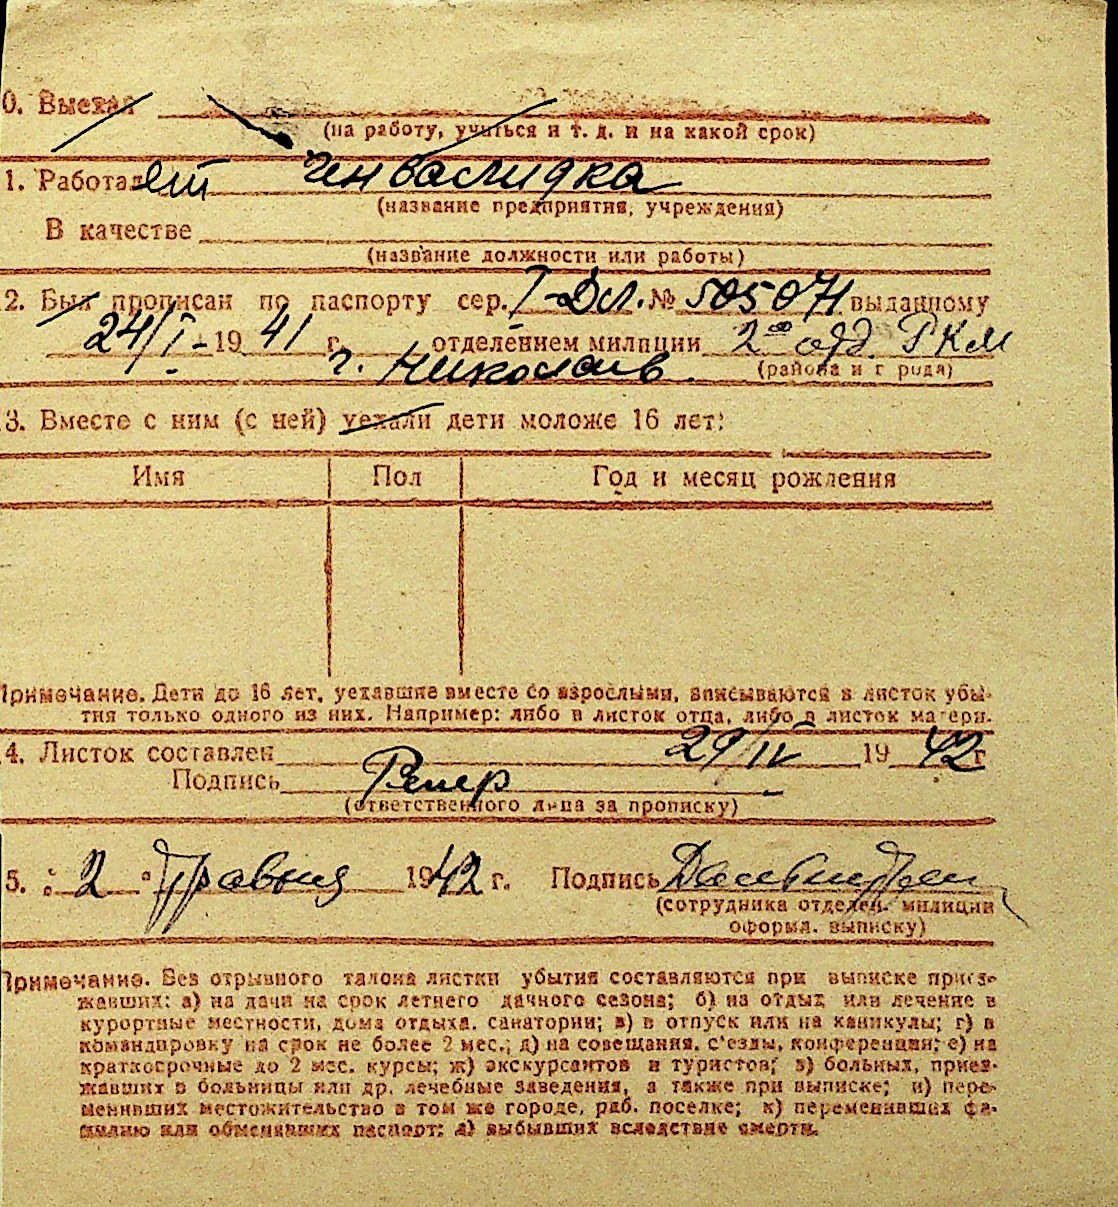 0. Выехал
(на работу, учиться и т. д. и на какой срок)
1. Работает инвалидка
(название предприятия, учреждения)
В качестве
(название должности или работы)
2. Был прописан по паспорту сер. I-Дсл. № 505071 выданному
24/I-1941 г. отделением милиции 2ое отд. РКМ
г. Николаев (района и города)
3. Вместе с ним (с ней) уехали дети моложе 16 лет:
Имя Пол Год и месяц рождения
Примечание. Дети до 16 лет, уехавшие вместе со взрослыми, вписываются в листок убы-
тия только одного из них. Например: либо в листок отца, либо в листок матери.
4. Листок составлен 29/IV 1942 г
Подпись
(ответственного лица за прописку)
5. „ 2 " травня 1942 г. Подпись
(сотрудника отделен. милиции
оформл. выписку)
Примечание. Без отрывного талона листки убытия составляются при выписке приез-
жавших: а) на дачи на срок летнего дачного сезона; б) на отдых или лечение в
курортные местности, дома отдыха, санатории; в) в отпуск или на каникулы; г) в
командировку на срок не более 2 мес.; д) на совещания, с'езды, конференции; е) на
краткосрочные до 2 мес. курсы; ж) экскурсантов и туристов; з) больных, приез-
жавших в больницы или др. лечебные заведения, а также при выписке; и) пере-
менивших местожительство в том же городе, раб. поселке; к) переменивших фа-
милию или обменявших паспорт; л) выбывших вследствие смерти.